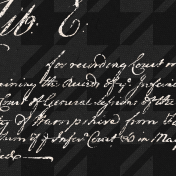 Lib: E.
for recording Court
ining the Records of ye Inferior
Court of General Sessions of the
of Hampshire from the
of ye Inferr Court in May